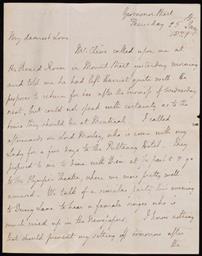 Grosvenor Street
Thursday 25
My dearest Love
Mr. Chism called upon me at
the Board Room in Mount Street yesterday morning
and told me he had left Harriet quite with the
purpose to return for her after the of Wednesday
next, but could not speak with certainty as to the
time they should be at Montreal. I called
afterwards on Lord Henley, who is come with my
Lady for a few days to the Pulteney Hotel. They
proposed to me to dine with them at ½ past 4 & go
to the Olympic Theatre, where we were pretty well
amused. We talk of a similar party this evening
to Drury Lane to hear a female singer who is
much cried up in the Newspapers. I know nothing
that should prevent my setting off tomorrow after
the